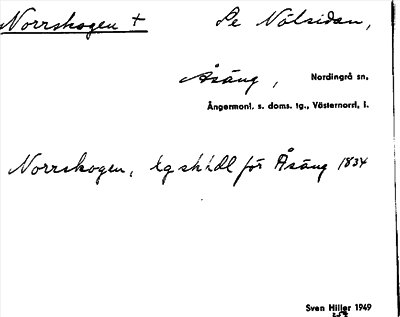 Norrskogen + Se Nålsidan,
Åsäng, Nordingrå sn.
Ångermanl. s. doms. tg., Västernorrl. l.
Norrskogen, lgskhdl för Åsäng 1834
Sven Hiller 1949